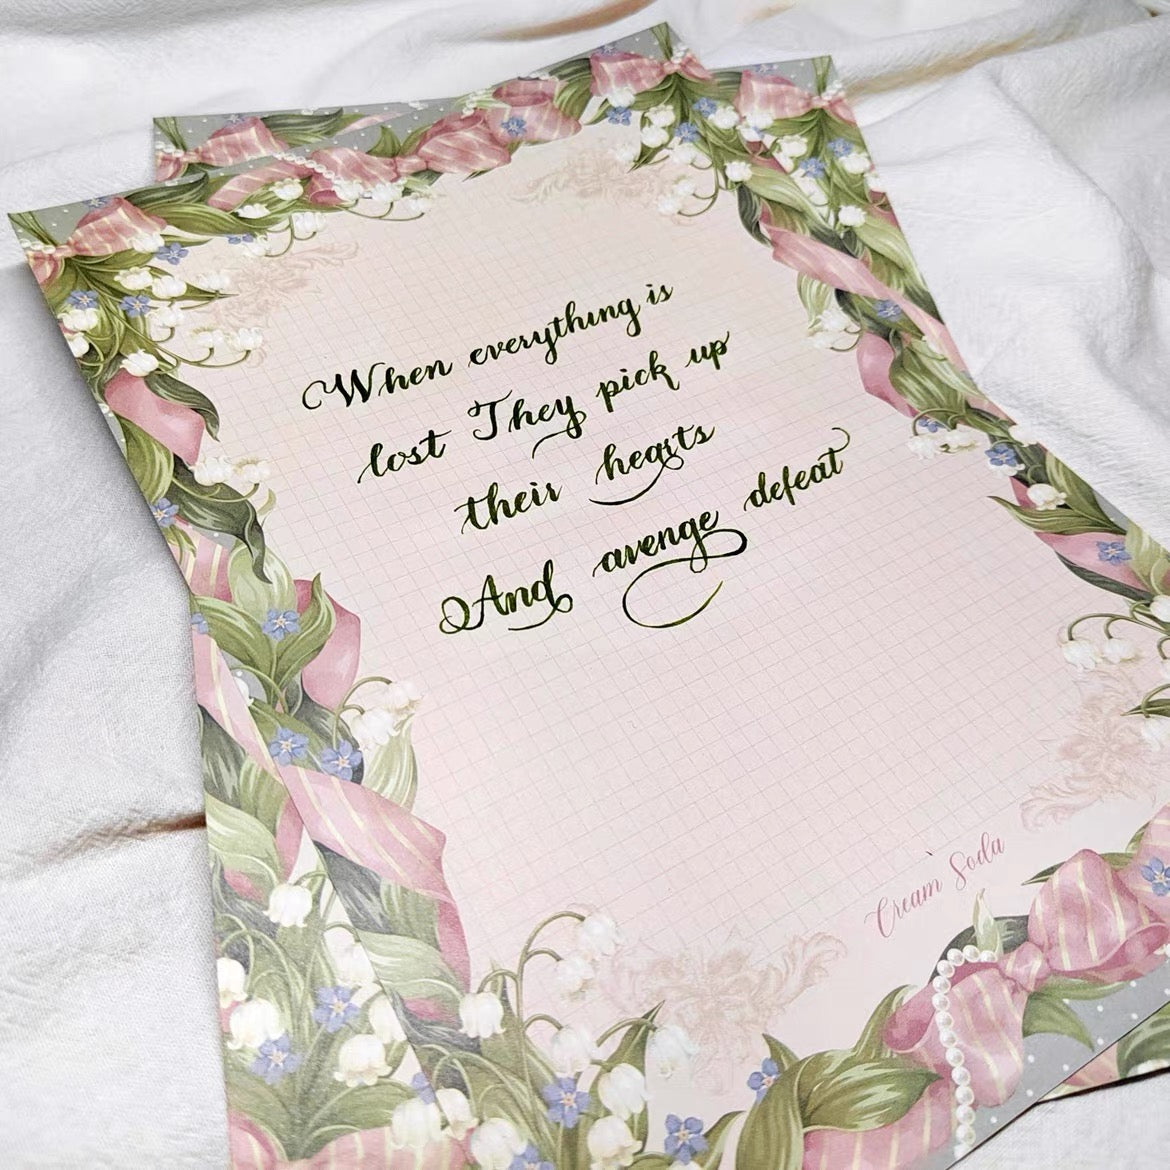 When everything is
lost They pick up
their hearts
And avenge defeat
Cream Soda